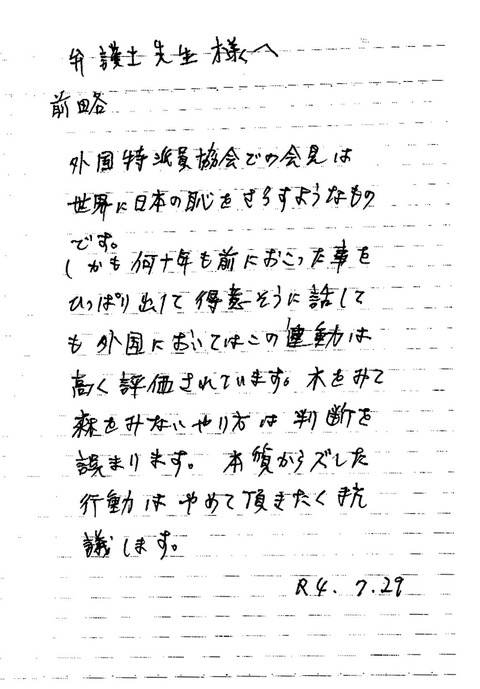 弁護士先生様へ
前略
外国特派員協会での会見は
世界に日本の恥をさらすようなもの
です。
しかも何十年も前におこった事を
ひっぱり出して得意そうに話して
も外国においてはこの運動は
高く評価されています。木をみて
森をみないやり方は判断を
誤まります。本質からズレした
行動はやめて頂きたく抗
議します。
R4.7.29